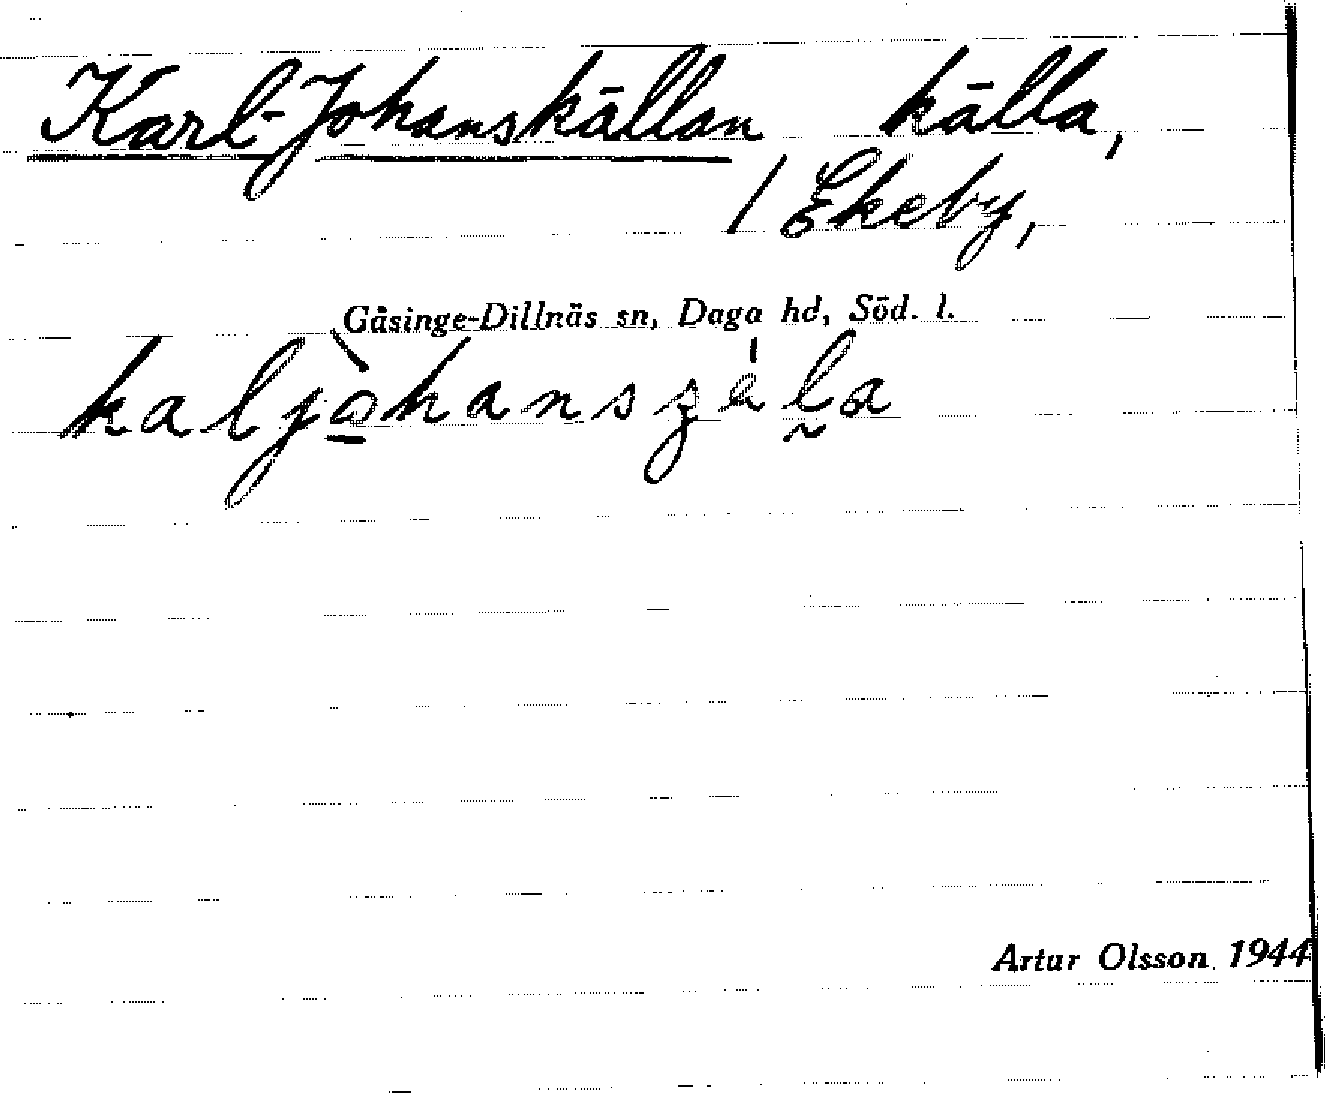 Karl-Johanskällan källa,
/ Ekeby,
Gåsinge-Dillnäs sn, Daga hd, Söd. l.
kaljò̲hansʒa̍l̰a
Artur Olsson 1944